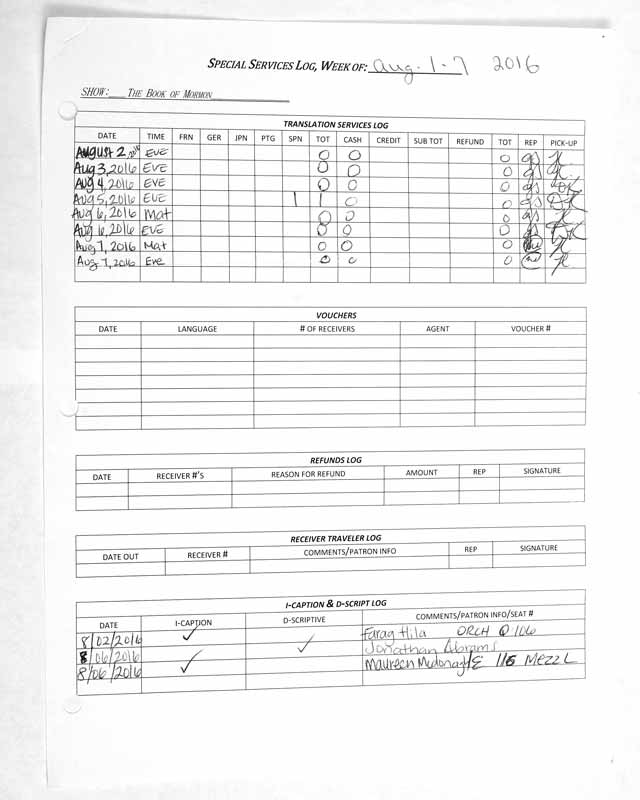 SPECIAL SERVICES LOG, WEEK OF: Aug. 1-7 2016
SHOW: THE BOOK OF MORMON
TRANSLATION SERVICES LOG
DATE TIME FRN GER JPN PTG SPN TOT CASH CREDIT SUB TOT REFUND TOT REP PICK-UP
August 2, 2016 EVE 0 0 0 gs
Aug 3, 2016 EVE 0 0 0 gs
Aug 4, 2016 EVE 0 0 0 gs
Aug 5, 2016 EVE 1 1 0 0 gs
Aug 6, 2016 Mat 0 0 0 gs
Aug 6, 2016 EVE 0 0 0 gs
Aug 7, 2016 Mat 0 0 0
Aug 7, 2016 Eve 0 0 0
VOUCHERS
DATE LANGUAGE # OF RECEIVERS AGENT VOUCHER #
REFUNDS LOG
DATE RECEIVER #'S REASON FOR REFUND AMOUNT REP SIGNATURE
RECEIVER TRAVELER LOG
DATE OUT RECEIVER # COMMENTS/PATRON INFO REP SIGNATURE
I-CAPTION & D-SCRIPT LOG
DATE I-CAPTION D-SCRIPTIVE COMMENTS/PATRON INFO/SEAT #
8/02/2016 ✓ Farag Hila ORCH Q 106
8/06/2016 ✓ Jonathan Abrams
8/06/2016 ✓ Maureen 115 Mezz L